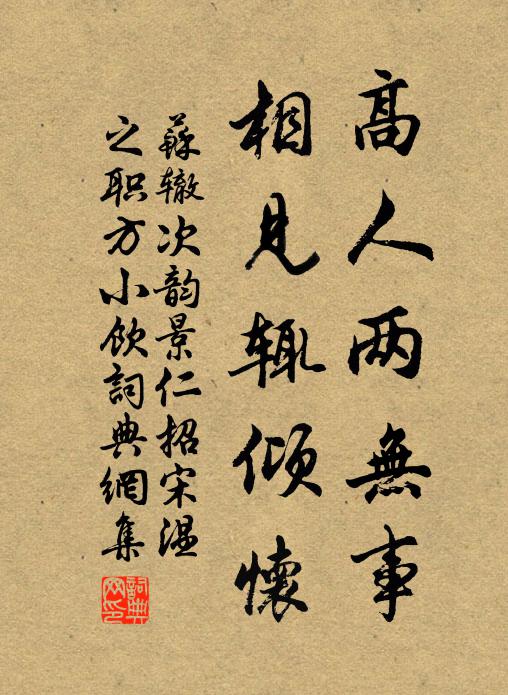 高人两無事
相見辄傾懷
蘇辙次韵景仁招宋温
之职方小飲詞典網集
詞典网印